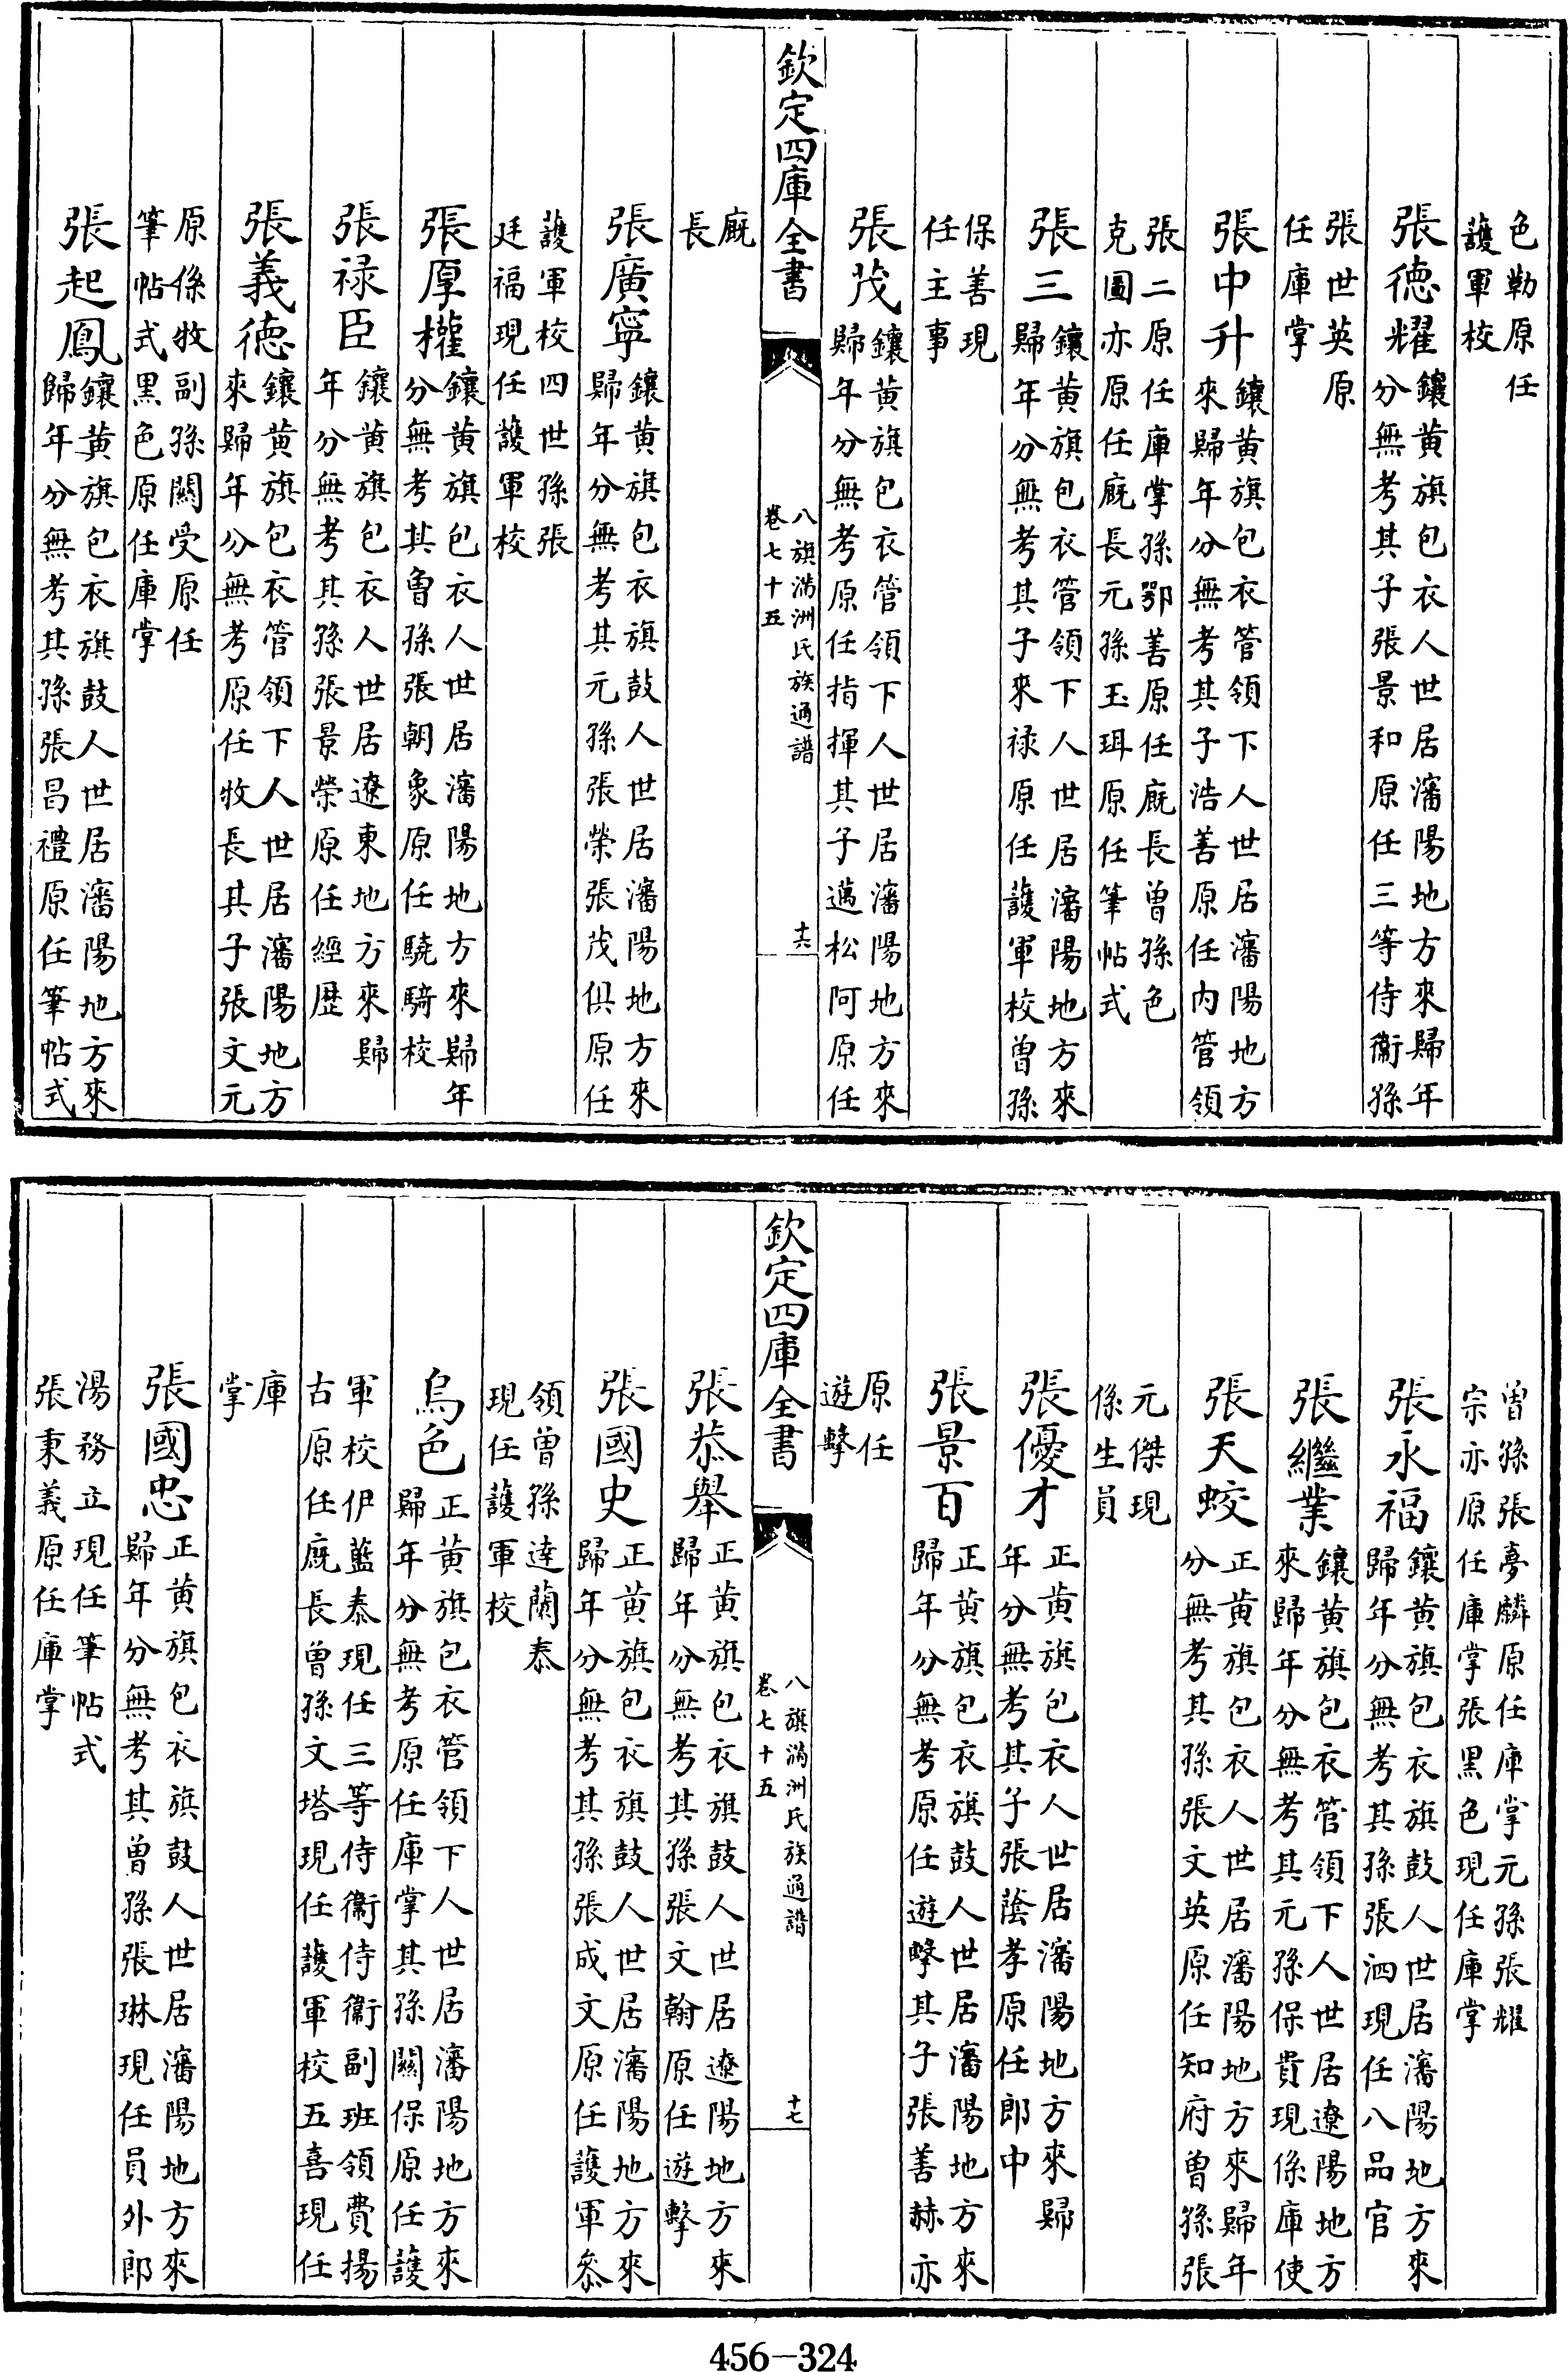 色勒原任
護軍校
張德耀鑲黄旗包衣人世居瀋陽地方來歸年
分無考其子張景和原任三等侍衞孫
張世英原
任庫掌
張中升鑲黄旗包衣管領下人世居瀋陽地方
來歸年分無考其子浩善原任内管領
張二原任庫掌孫鄂善原任廐長曾孫色
克圖亦原任廐長元孫玉珥原任筆帖式
張三鑲黄旗包衣管領下人世居瀋陽地方來
歸年分無考其子來禄原任護軍校曾孫
保善現
任主事
張茂鑲黄旗包衣管領下人世居瀋陽地方來
歸年分無考原任指揮其子邁松阿原任
欽定四庫全書
八旗滿洲氏族通譜
卷七十五
十六
廐
長
張廣寧鑲黄旗包衣旗鼓人世居瀋陽地方來
歸年分無考其元孫張榮張茂俱原任
護軍校四世孫張
廷福現任護軍校
張厚權鑲黄旗包衣人世居瀋陽地方來歸年
分無考其曾孫張朝象原任驍騎校
張禄臣鑲黄旗包衣人世居遼東地方來歸
年分無考其孫張景榮原任經歴
張義德鑲黄旗包衣管領下人世居瀋陽地方
來歸年分無考原任牧長其子張文元
原係牧副孫闗受原任
筆帖式黑色原任庫掌
張起鳳鑲黄旗包衣旗鼓人世居瀋陽地方來
歸年分無考其孫張昌禮原任筆帖式
曾孫張夢麟原任庫掌元孫張耀
宗亦原任庫掌張黑色現任庫掌
張永福鑲黄旗包衣旗鼓人世居瀋陽地方來
歸年分無考其孫張泗現任八品官
張繼業鑲黄旗包衣管領下人世居遼陽地方
來歸年分無考其元孫保貴現係庫使
張天蛟正黄旗包衣人世居瀋陽地方來歸年
分無考其孫張文英原任知府曾孫張
元傑現
係生員
張優才正黄旗包衣人世居瀋陽地方來歸
年分無考其子張蔭孝原任郎中
張景百正黄旗包衣旗鼓人世居瀋陽地方來
歸年分無考原任遊擊其子張善赫亦
原任
遊擊
欽定四庫全書
八旗滿洲氏族通譜
卷七十五
十七
張恭舉正黄旗包衣旗鼓人世居遼陽地方來
歸年分無考其孫張文翰原任遊擊
張國史正黄旗包衣旗鼓人世居瀋陽地方來
歸年分無考其孫張成文原任護軍參
領曾孫達蘭泰
現任護軍校
烏色正黄旗包衣管領下人世居瀋陽地方來
歸年分無考原任庫掌其孫闗保原任護
軍校伊藍泰現任三等侍衞侍衞副班領費揚
古原任廐長曾孫文塔現任護軍校五喜現任
庫
掌
張國忠正黄旗包衣旗鼓人世居瀋陽地方來
歸年分無考其曾孫張琳現任員外郎
湯務立現任筆帖式
張秉義原任庫掌
456-324